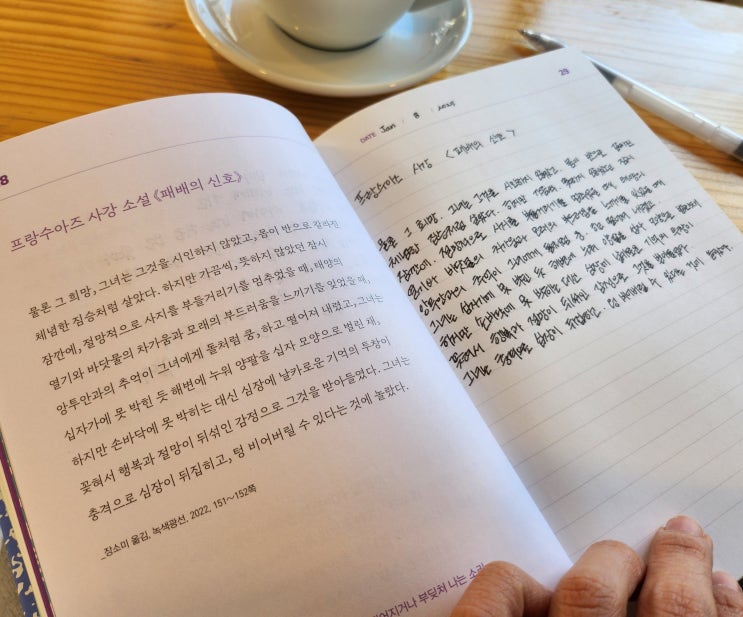 8
프랑수아즈 사강 소설 《패배의 신호》
물론 그 희망, 그녀는 그것을 시인하지 않았고, 몸이 반으로 갈라진
체념한 짐승처럼 살았다. 하지만 가끔씩, 뜻하지 않았던 잠시
잠깐에, 절망적으로 사지를 부들거리기를 멈추었을 때, 태양의
열기와 바닷물의 차가움과 모래의 부드러움을 느끼고 있었을 때,
앙투안과의 추억이 그녀에게 돌처럼 쿵, 하고 떨어져 내렸고, 그녀는
십자가에 못 박힌 듯 해변에 누워 양팔을 십자 모양으로 벌린 채,
하지만 손바닥에 못 박히는 대신 심장에 날카로운 기억의 투창이
꽂혀서 행복과 절망이 뒤섞인 감정으로 그것을 받아들였다. 그녀는
충격으로 심장이 뒤집히고, 텅 비어버릴 수 있다는 것에 놀랐다.
_장소미 옮김, 녹색광선, 2022, 151~152쪽
부딪쳐 나는 소리
29
DATE Jan / 8 / 2025
프랑수아즈 사강 <패배의 신호>
물론 그 희망, 그녀는 그것을 시인하지 않았고, 몸이 반으로
체념한 짐승처럼 살았다. 하지만 가끔씩 뜻하지 않았던 잠시
잠깐에, 절망적으로 사지를
열기와 바닷물의 차가움과 모래의 부드러움을
앙투안과의 추억이 그녀에게
그녀는 십자가에 못 박힌 듯 해변에 누워 양팔을 십자 모양으로
하지만 손바닥에 못 박히는 대신 심장에 날카로운 기억의 투창이
꽂혀서 행복과 절망이 뒤섞인 감정으로 그것을 받아들였다.
그녀는 충격으로 심장이 뒤집히고, 텅 비어버릴 수 있다는 것에 놀랐다.